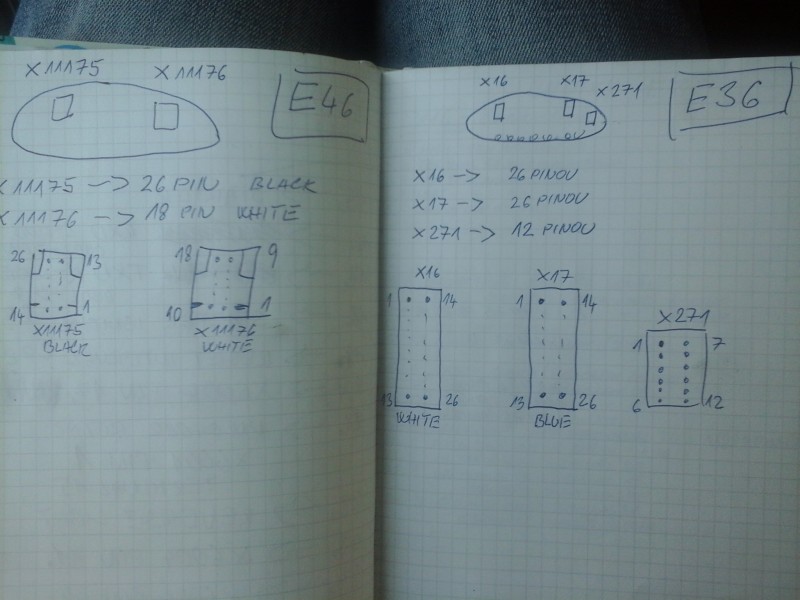 X11175 X11176 E46
X11175 -> 26 PIN BLACK
X11176 -> 18 PIN WHITE
26 13 18 9
14 1 10 1
X11175 X11176
BLACK WHITE
X16 X17 X271 E36
X16 -> 26 PINOV
X17 -> 26 PINOV
X271 -> 12 PINOV
X16 X17 X271
1 14 1 14 1 7
13 26 13 26 6 12
WHITE BLUE